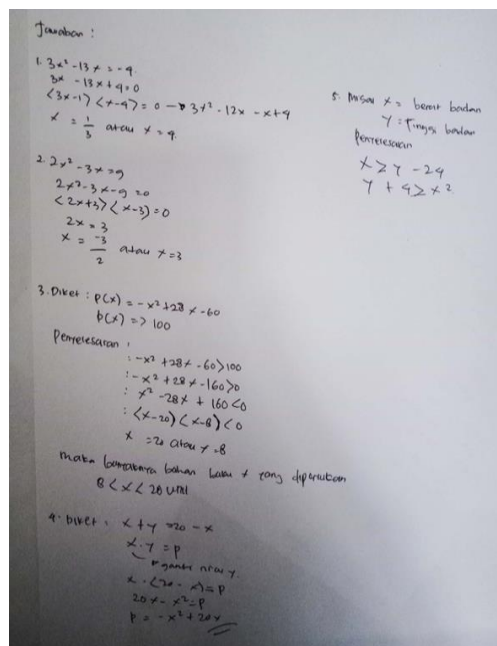 Jawaban :
1. 3x² - 13x = -4
3x - 13x + 4 = 0
(3x-1) (x-4) = 0 → 3x² - 12x - x + 4
x = 1/3 atau x = 4.
2. 2x² - 3x = 9
2x² - 3x - 9 = 0
(2x+3) (x-3) = 0
2x = 3
x = -3/2 atau x = 3
3. Diket : p(x) = -x² + 28x - 60
p(x) => 100
Penyelesaian :
: -x² + 28x - 60 > 100
: -x² + 28x - 160 > 0
: x² - 28x + 160 < 0
: (x-20) (x-8) < 0
x = 20 atau x = 8
maka banyaknya bahan baku x yang diperlukan
8 < x < 20 unit
4. Diket : x + y = 20 - x
x . y = p
ganti nilai y.
x . (20 - x) = p
20x - x² = p
p = -x² + 20x
5. Misal x = berat badan
y = Tinggi badan
Penyelesaian
x ≥ y - 24
y + 4 ≥ x²